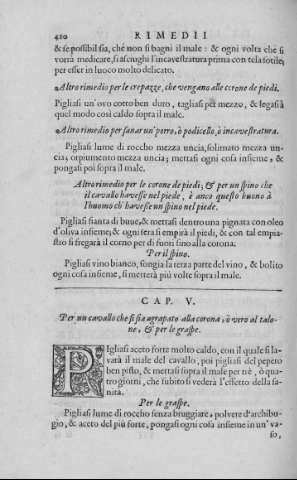 420 RIMEDII
& se possibil sia, che non si bagni il male : & ogni volta che si
vorrà medicare, si asciughi l'incavestratura prima con tela sotile,
per esser in luoco molto delicato.
Altro rimedio per le crepazze, che vengano alle corone de piedi.
Pigliasi un'ovo cotto ben duro, tagliasi per mezzo, & legasi à
quel modo così caldo sopra il male.
Altro rimedio per sanar un porro, ò podicello, ò incavestratura.
Pigliasi lume di roccho mezza uncia, solimato mezza un-
cia, orpiumento mezza uncia; mettasi ogni cosa insieme, &
pongasi poi sopra il male.
Altro rimedio per le corone de piedi, & per un spino che
il cavallo havesse nel piede, è anco questo buono à
l'huomo ch'havesse un spino nel piede.
Pigliasi fianta di buue, & mettasi dentro una pignata con oleo
d'oliva insieme; & ogni sera si empirà il piedi, & con tal empia-
sto si fregarà il corno per di fuori fino alla corona.
Per il spino.
Pigliasi vino bianco, songia la terza parte del vino, & bolito
ogni cosa insieme, si metterà più volte sopra il male.
CAP. V.
Per un cavallo che si sia agrapato alla corona, ò vero al talo-
ne, & per le graspe.
Pigliasi aceto forte molto caldo, con il quale si la-
varà il male del cavallo, poi pigliasi del pepeto
ben pisto, & mettasi sopra il male per trè, ò qua-
tro giorni, che subito si vederà l'effetto della sa-
nita.
Per le graspe.
Pigliasi lume di roccho senza bruggiare, polvere d'archibu-
gio, & aceto del più forte, pongasi ogni cosa insieme in un' va-
so,